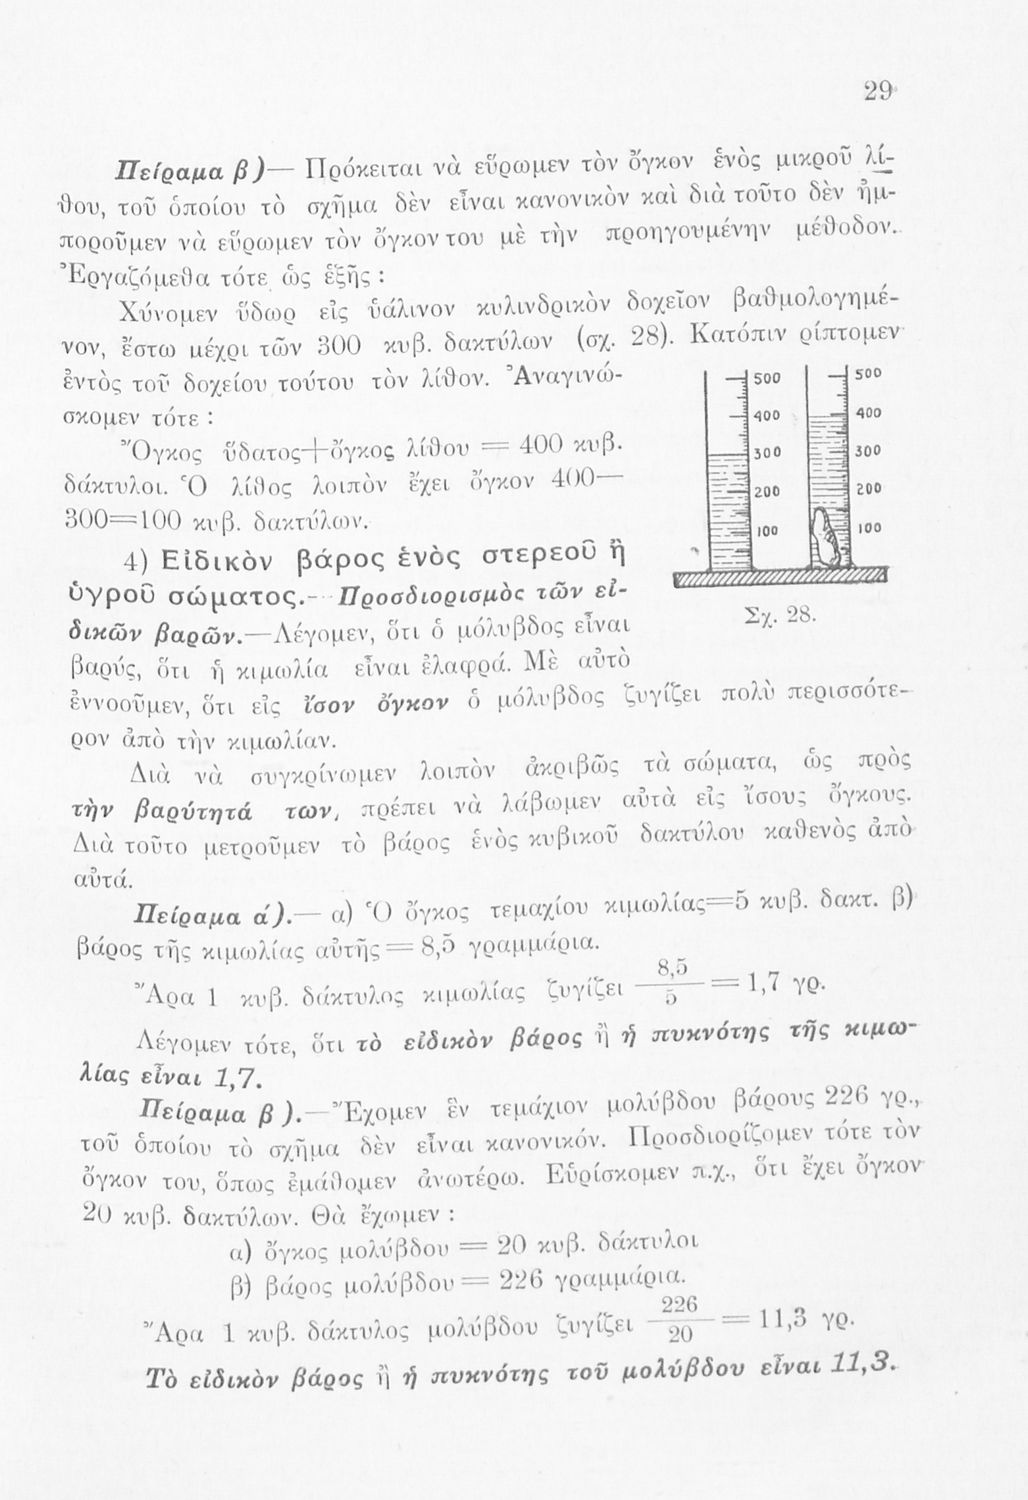 29
Πείραμα β)— Πρόκειται νὰ εὕρωμεν τὸν ὄγκον ἑνὸς μικροῦ λί-
θου, τοῦ ὁποίου τὸ σχῆμα δὲν εἶναι κανονικὸν καὶ διὰ τοῦτο δὲν ἠμ-
ποροῦμεν νὰ εὕρωμεν τὸν ὄγκον του μὲ τὴν προηγουμένην μέθοδον.
Ἐργαζόμεθα τότε ὡς ἑξῆς :
Χύνομεν ὕδωρ εἰς ὑάλινον κυλινδρικὸν δοχεῖον βαθμολογημέ-
νον, ἔστω μέχρι τῶν 300 κυβ. δακτύλων (σχ. 28). Κατόπιν ρίπτομεν
ἐντὸς τοῦ δοχείου τούτου τὸν λίθον. Ἀναγινώ-
σκομεν τότε :
Ὄγκος ὕδατος+ὄγκος λίθου = 400 κυβ.
δάκτυλοι. Ὁ λίθος λοιπὸν ἔχει ὄγκον 400—
300=100 κυβ. δακτύλων.
500 500
400 400
300 300
200 200
100 100
Σχ. 28.
4) Εἰδικὸν βάρος ἑνὸς στερεοῦ ἢ
ὑγροῦ σώματος.- Προσδιορισμὸς τῶν εἰ-
δικῶν βαρῶν.—Λέγομεν, ὅτι ὁ μόλυβδος εἶναι
βαρύς, ὅτι ἡ κιμωλία εἶναι ἐλαφρά. Μὲ αὐτὸ
ἐννοοῦμεν, ὅτι εἰς ἴσον ὄγκον ὁ μόλυβδος ζυγίζει πολὺ περισσότε-
ρον ἀπὸ τὴν κιμωλίαν.
Διὰ νὰ συγκρίνωμεν λοιπὸν ἀκριβῶς τὰ σώματα, ὡς πρὸς
τὴν βαρύτητά των, πρέπει νὰ λάβωμεν αὐτὰ εἰς ἴσους ὄγκους.
Διὰ τοῦτο μετροῦμεν τὸ βάρος ἑνὸς κυβικοῦ δακτύλου καθενὸς ἀπὸ
αὐτά.
Πείραμα ά).— α) Ὁ ὄγκος τεμαχίου κιμωλίας=5 κυβ. δακτ. β)
βάρος τῆς κιμωλίας αὐτῆς = 8,5 γραμμάρια.
Ἄρα 1 κυβ. δάκτυλος κιμωλίας ζυγίζει 8,5/5 = 1,7 γρ.
Λέγομεν τότε, ὅτι τὸ εἰδικὸν βάρος ἢ ἡ πυκνότης τῆς κιμω-
λίας εἶναι 1,7.
Πείραμα β ).—Ἔχομεν ἓν τεμάχιον μολύβδου βάρους 226 γρ.,
τοῦ ὁποίου τὸ σχῆμα δὲν εἶναι κανονικόν. Προσδιορίζομεν τότε τὸν
ὄγκον του, ὅπως ἐμάθομεν ἀνωτέρω. Εὑρίσκομεν π.χ., ὅτι ἔχει ὄγκον
20 κυβ. δακτύλων. Θὰ ἔχωμεν :
α) ὄγκος μολύβδου = 20 κυβ. δάκτυλοι
β) βάρος μολύβδου = 226 γραμμάρια.
Ἄρα 1 κυβ. δάκτυλος μολύβδου ζυγίζει 226/20 = 11,3 γρ.
Τὸ εἰδικὸν βάρος ἢ ἡ πυκνότης τοῦ μολύβδου εἶναι 11,3.